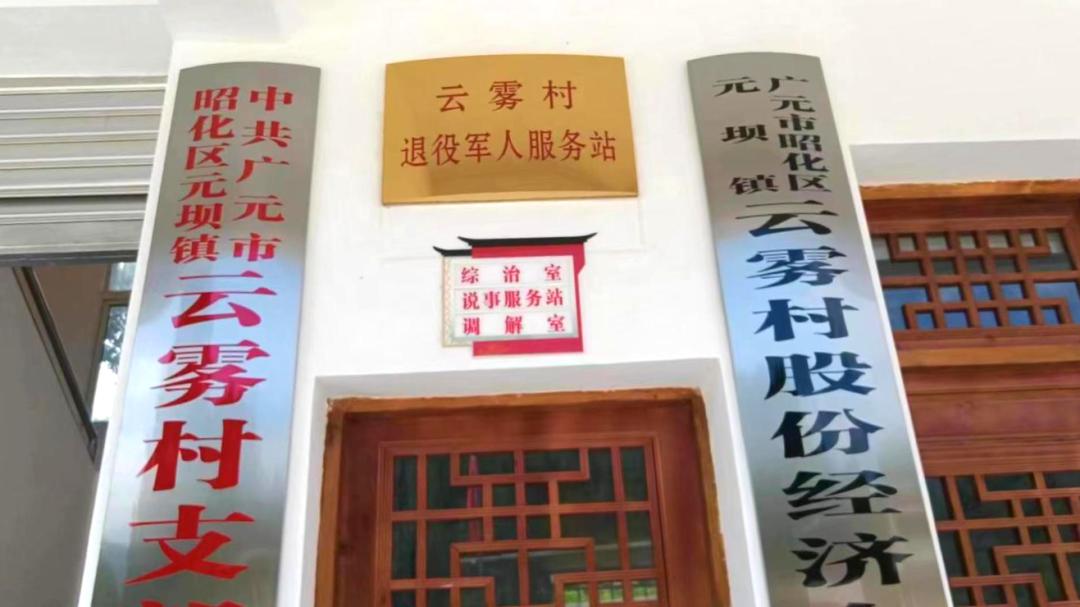 中共广元市
昭化区元坝镇
云雾村支
云雾村
退役军人服务站
综治室
说事服务站
调解室
广元市昭化区
元坝镇
云雾村股份经济